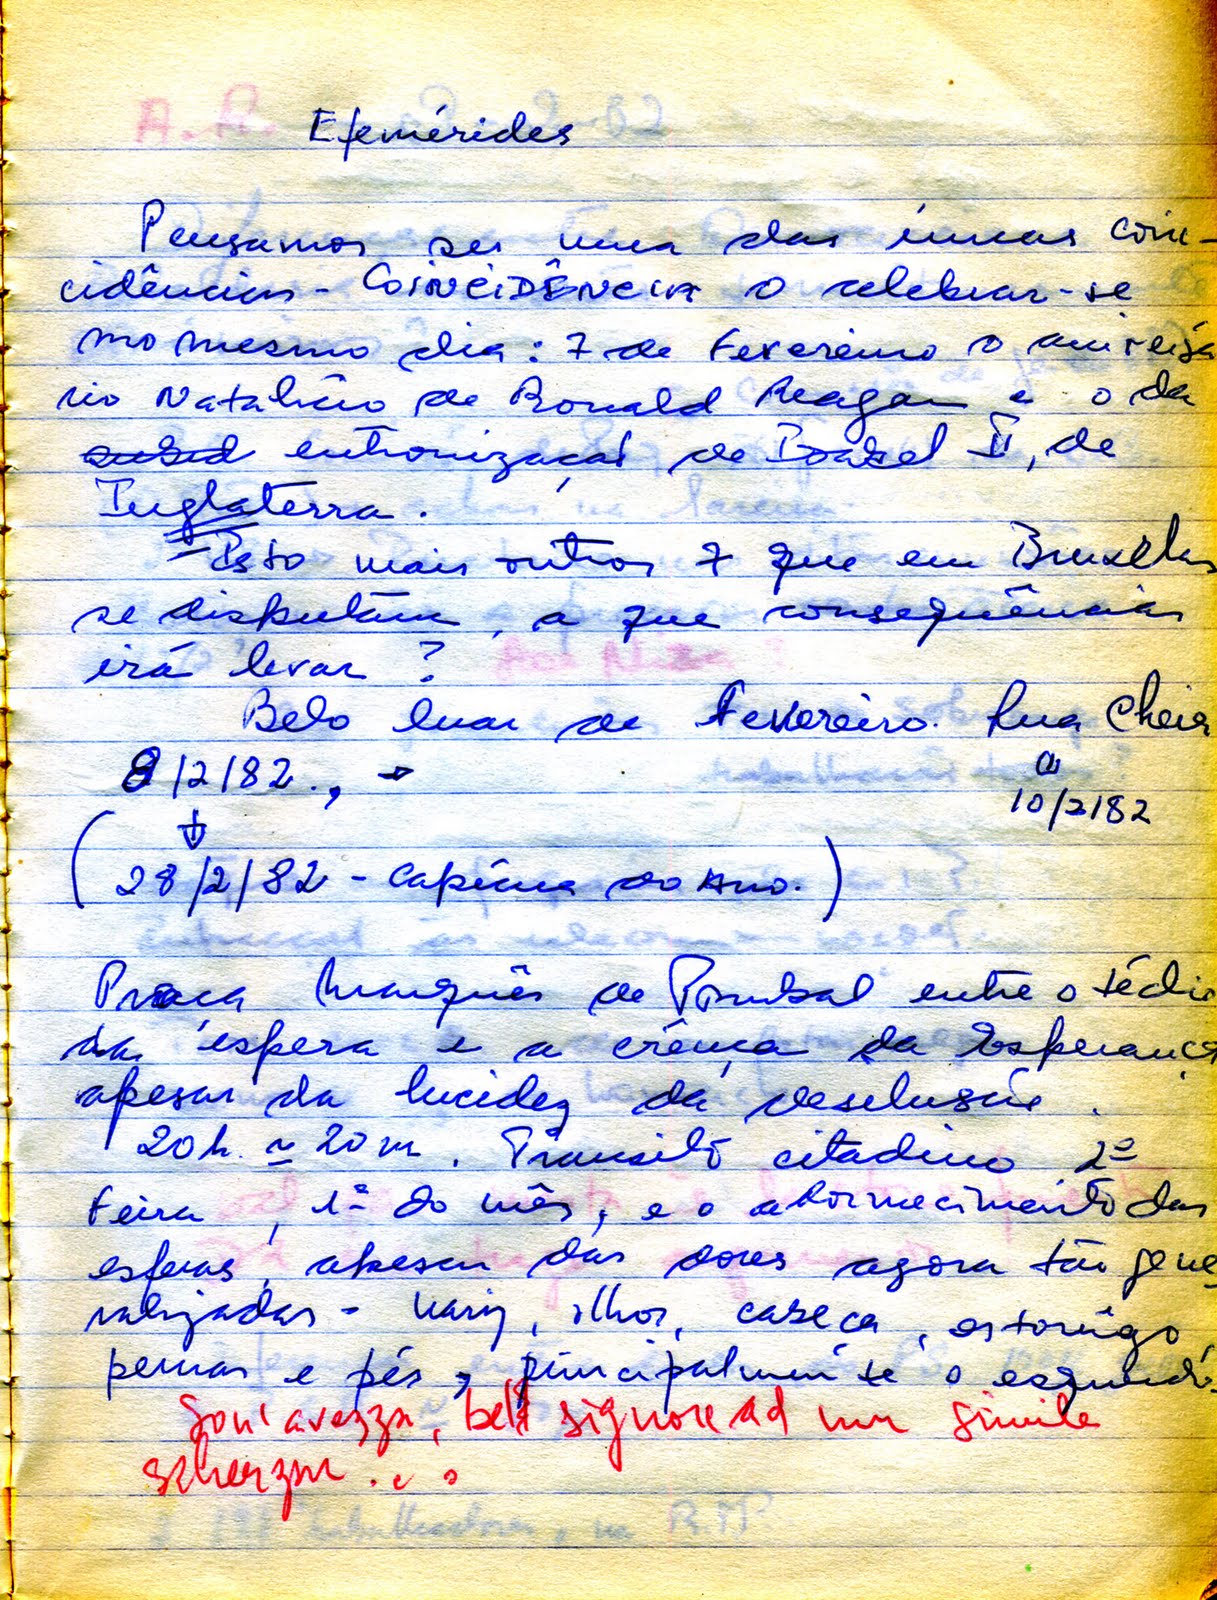 Efemérides
Pensamos ser uma das coin-
cidências - COINCIDÊNCIA o celebrar-se
no mesmo dia: 7 de Fevereiro o aniversá
rio Natalício de Ronald Reagan e o da
entronização de II, de
Inglaterra.
- Isto mais outros 7 que em Bruxelas
se disputam, a que consequências
irá levar?
Belo luar de Fevereiro. Lua Cheia
8/2/82., → a
10/2/82
(28/2/82 - do Ano.)
Praça Marquês de Pombal entre o tédio
da espera e a crença da Esperança
apesar da lucidez da desilusão.
20h. ≃ 20m. Trânsito citadino 2ª
Feira, 1ª do mês, e o adormecimento das
esferas, apesar das dores agora tão gene
ralizadas - nariz, olhos, cabeça, estômago,
pernas e pés, principalmente o esquerdo.
Son' avezza, bel signore ad un simile
scherzar...